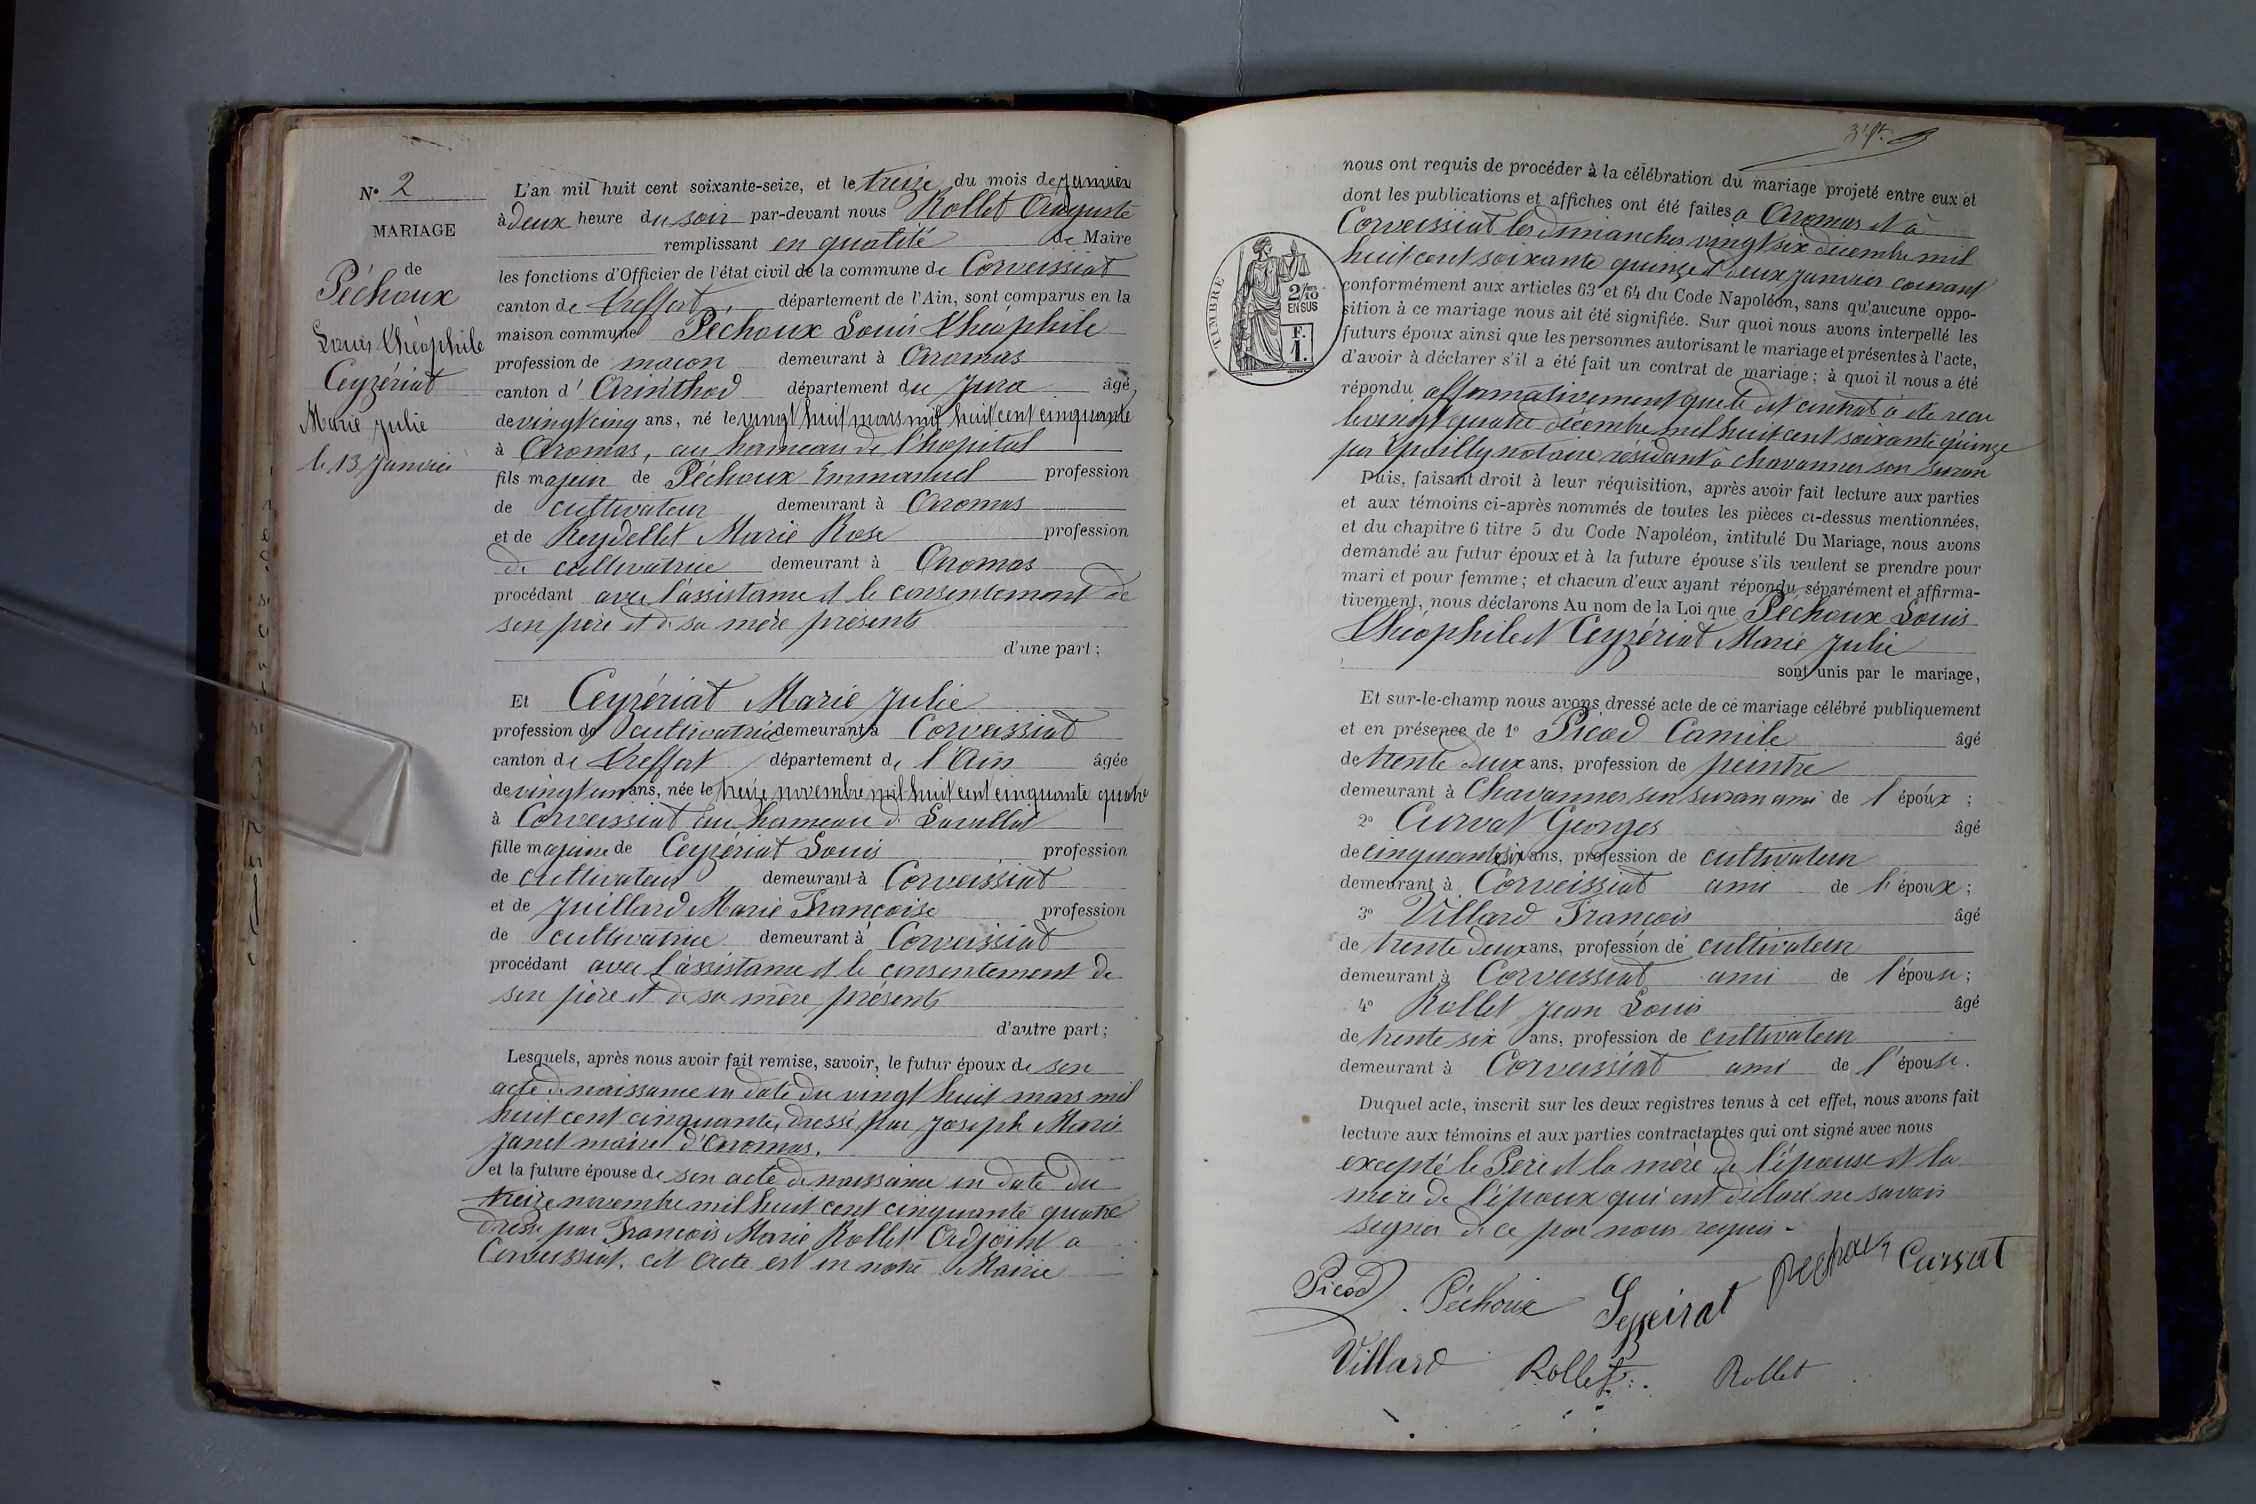 N° 2
MARIAGE
de
Péchoux
Louis Théophile
Ceyzériat
Marie Julie
le 13 Janvier
L'an mil huit cent soixante-seize, et le treize du mois de Janvier
à deux heure du soir par-devant nous Rollet Auguste
remplissant en qualité de Maire
les fonctions d'Officier de l'état civil de la commune de Corveissiat
canton de Treffort département de l'Ain, sont comparus en la
maison commune Péchoux Louis Théophile
profession de maçon demeurant à Aromas
canton d' Arinthod département du Jura âgé
de vingt cinq ans, né le vingt huit mars mil huit cent cinquante
à Aromas, au hameau de l'hopital
fils majeur de Péchoux Emmanuel profession
de cultivateur demeurant à Aromas
et de Reydellet Marie Rose profession
de cultivatrice demeurant à Aromas
procédant avec l'assistance et le consentement de
son père et de sa mère présents
d'une part;
Et Ceyzériat Marie Julie
profession de cultivatrice demeurant à Corveissiat
canton de Treffort département de l'Ain âgée
de vingt un ans, née le treize novembre mil huit cent cinquante quatre
à Corveissiat au hameau de
fille majeure de Ceyzériat Louis profession
de cultivateur demeurant à Corveissiat
et de Juillard Marie Françoise profession
de cultivatrice demeurant à Corveissiat
procédant avec l'assistance et le consentement de
son père et de sa mère présents
d'autre part;
Lesquels, après nous avoir fait remise, savoir, le futur époux de son
acte de naissance en date du vingt huit mars mil
huit cent cinquante, dressé par Joseph Marie
Janet maire d'Aromas.
et la future épouse de son acte de naissance en date du
treize novembre mil huit cent cinquante quatre
dressé par François Marie Rollet Adjoint a
Corveissiat. cet acte est en notre Mairie
nous ont requis de procéder à la célébration du mariage projeté entre eux et
dont les publications et affiches ont été faites a Aromas et à
Corveissiat les dimanches vingt six décembre mil
huit cent soixante quinze et deux Janvier courant
conformément aux articles 63 et 64 du Code Napoléon, sans qu'aucune oppo-
sition à ce mariage nous ait été signifiée. Sur quoi nous avons interpellé les
futurs époux ainsi que les personnes autorisant le mariage et présentes à l'acte,
d'avoir à déclarer s'il a été fait un contrat de mariage; à quoi il nous a été
répondu affirmativement que le dit contrat à été recu
le vingt quatre décembre mil huit cent soixante quinze
par notaire résidant à Chavannes son Suran
Puis, faisant droit à leur réquisition, après avoir fait lecture aux parties
et aux témoins ci-après nommés de toutes les pièces ci-dessus mentionnées,
et du chapitre 6 titre 5 du Code Napoléon, intitulé Du Mariage, nous avons
demandé au futur époux et à la future épouse s'ils veulent se prendre pour
mari et pour femme; et chacun d'eux ayant répondu séparément et affirma-
tivement, nous déclarons Au nom de la Loi que Péchoux Louis
Théophile et Ceyzériat Marie Julie
sont unis par le mariage,
Et sur-le-champ nous avons dressé acte de ce mariage célébré publiquement
et en présence de 1° Picod Camile âgé
de trente deux ans, profession de peintre
demeurant à Chavannes sur suran ami de l'époux;
2° Curvat Georges âgé
de cinquante six ans, profession de cultivateur
demeurant à Corveissiat ami de l'époux;
3° Villard François âgé
de trente deux ans, profession de cultivateur
demeurant à Corveissiat ami de l'épouse;
4° Rollet Jean Louis âgé
de trente six ans, profession de cultivateur
demeurant à Corveissiat ami de l'épouse.
Duquel acte, inscrit sur les deux registres tenus à cet effet, nous avons fait
lecture aux témoins et aux parties contractantes qui ont signé avec nous
excepté le Père et la mère de l'épouse et la
mère de l'époux qui ont déclaré ne savoir
signer de ce par nous requis -
Picod Péchoux Péchoux Curvat
Villard Rollet Rollet
TIMBRE
2/10
EN SUS
F.
1.